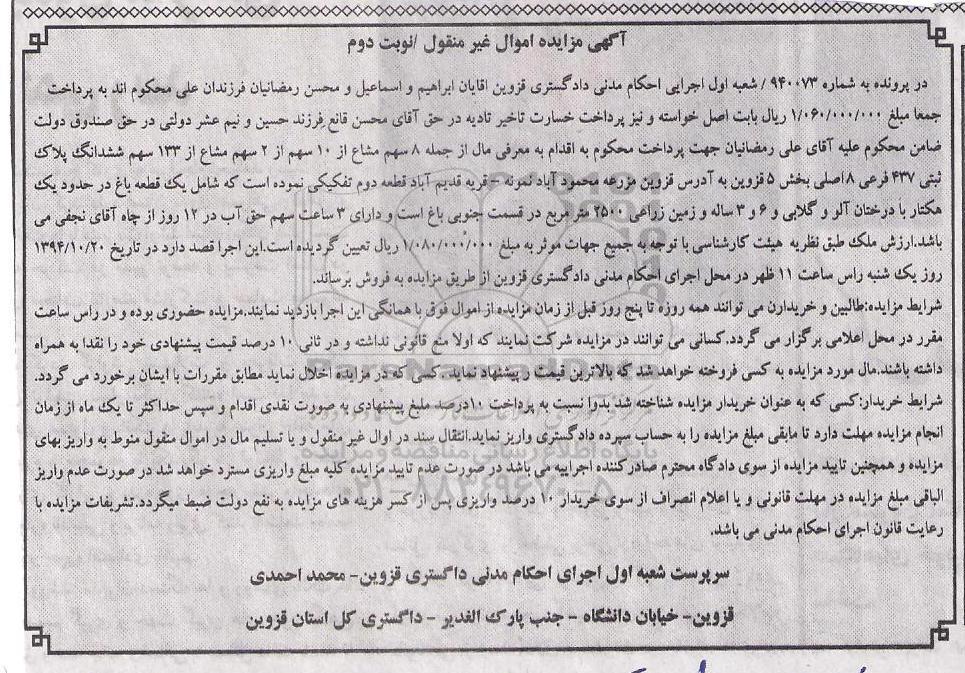 آگهی مزایده اموال غیر منقول /نوبت دوم
در پرونده به شماره ۹۴۰۰۷۳ / شعبه اول اجرایی احکام مدنی دادگستری قزوین اقایان ابراهیم و اسماعیل و محسن رمضانیان فرزندان علی محکوم اند به پرداخت
جمعا مبلغ ۱/۰۶۰/۰۰۰/۰۰۰ ریال بابت اصل خواسته و نیز پرداخت خسارت تاخیر تادیه در حق آقای محسن قانع فرزند حسین و نیم عشر دولتی در حق صندوق دولت
ضامن محکوم علیه آقای علی رمضانیان جهت پرداخت محکوم به اقدام به معرفی مال از جمله ۸ سهم مشاع از ۱۰ سهم از ۲ سهم مشاع از ۱۳۳ سهم ششدانگ پلاک
ثبتی ۴۳۷ فرعی ۸ اصلی بخش ۵ قزوین به آدرس قزوین مزرعه محمود آباد نمونه – قریه قدیم آباد قطعه دوم تفکیکی نموده است که شامل یک قطعه باغ در حدود یک
هکتار با درختان آلو و گلابی و ۶ و ۳ ساله و زمین زراعی ۲۵۰۰ متر مربع در قسمت جنوبی باغ است و دارای ۳ ساعت سهم حق آب در ۱۲ روز از چاه آقای نجفی می
باشد.ارزش ملک طبق نظریه هیئت کارشناسی با توجه به جمیع جهات موثر به مبلغ ۱/۰۸۰/۰۰۰/۰۰۰ ریال تعیین گردیده است.این اجرا قصد دارد در تاریخ ۱۳۹۴/۱۰/۲۰
روز یک شنبه راس ساعت ۱۱ ظهر در محل اجرای احکام مدنی دادگستری قزوین از طریق مزایده به فروش برساند.
شرایط مزایده:طالبین و خریدارن می توانند همه روزه تا پنج روز قبل از زمان مزایده از اموال فوق با همانگی این اجرا بازدید نمایند.مزایده حضوری بوده و در راس ساعت
مقرر در محل اعلامی برگزار می گردد.کسانی می توانند در مزایده شرکت نمایند که اولا منع قانونی نداشته و در ثانی ۱۰ درصد قیمت پیشنهادی خود را نقدا به همراه
داشته باشند.مال مورد مزایده به کسی فروخته خواهد شد که بالاترین قیمت ر پیشنهاد نماید.کسی که در مزایده اخلال نماید مطابق مقررات با ایشان برخورد می گردد.
شرایط خریدار:کسی که به عنوان خریدار مزایده شناخته شد بدوا نسبت به پرداخت ۱۰درصد ملبغ پیشنهادی به صورت نقدی اقدام و سپس حداکثر تا یک ماه از زمان
انجام مزایده مهلت دارد تا مابقی مبلغ مزایده را به حساب سپرده دادگستری واریز نماید.انتقال سند در اوال غیر منقول و یا تسلیم مال در اموال منقول منوط به واریز بهای
مزایده و همچنین تایید مزایده از سوی دادگاه محترم صادرکننده اجراییه می باشد در صورت عدم تایید مزایده کلیه مبلغ واریزی مسترد خواهد شد در صورت عدم واریز
الباقی مبلغ مزایده در مهلت قانونی و یا اعلام انصراف از سوی خریدار ۱۰ درصد واریزی پس از کسر هزینه های مزایده به نفع دولت ضبط میگردد.تشریفات مزایده با
رعایت قانون اجرای احکام مدنی می باشد.
سرپرست شعبه اول اجرای احکام مدنی داگستری قزوین- محمد احمدی
قزوین- خیابان دانشگاه – جنب پارک الغدیر – داگستری کل استان قزوین
پایگاه اطلاع رسانی مناقصه و مزایده